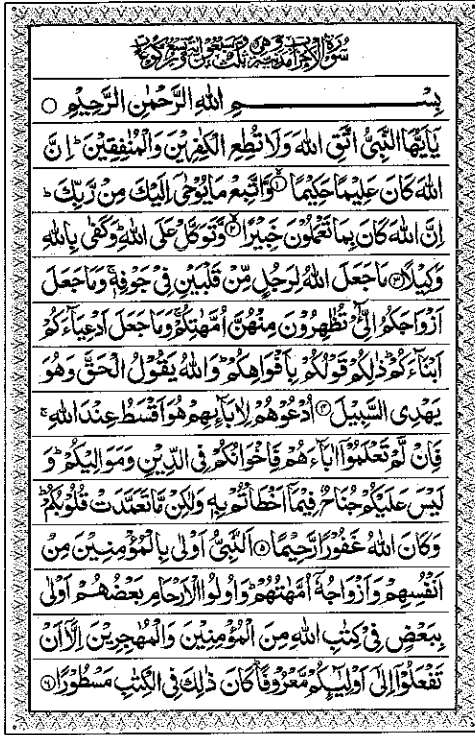 سُوْرَةُ الْاَحْزَابِ مَدَنِيَّةٌ وَّهِيَ ثَلٰثٌ وَّسَبْعُوْنَ اٰيَةً وَّتِسْعُ رُكُوْعَاتٍ
بِسْمِ اللهِ الرَّحْمٰنِ الرَّحِيْمِ ○
يٰۤاَيُّهَا النَّبِيُّ اتَّقِ اللهَ وَلَا تُطِعِ الْكٰفِرِيْنَ وَالْمُنٰفِقِيْنَ ؕ اِنَّ
اللهَ كَانَ عَلِيْمًا حَكِيْمًا ۙ﴿۱﴾ وَّاتَّبِعْ مَا يُوْحٰۤى اِلَيْكَ مِنْ رَّبِّكَ ؕ
اِنَّ اللهَ كَانَ بِمَا تَعْمَلُوْنَ خَبِيْرًا ۙ﴿۲﴾ وَّتَوَكَّلْ عَلَى اللهِ ؕ وَكَفٰى بِاللهِ
وَكِيْلًا ﴿۳﴾ مَا جَعَلَ اللهُ لِرَجُلٍ مِّنْ قَلْبَيْنِ فِيْ جَوْفِهٖ ۚ وَمَا جَعَلَ
اَزْوَاجَكُمُ الّٰٓـِٔيْ تُظٰهِرُوْنَ مِنْهُنَّ اُمَّهٰتِكُمْ ۚ وَمَا جَعَلَ اَدْعِيَآءَكُمْ
اَبْنَآءَكُمْ ؕ ذٰلِكُمْ قَوْلُكُمْ بِاَفْوَاهِكُمْ ؕ وَاللهُ يَقُوْلُ الْحَقَّ وَهُوَ
يَهْدِي السَّبِيْلَ ﴿۴﴾ اُدْعُوْهُمْ لِاٰبَآئِهِمْ هُوَ اَقْسَطُ عِنْدَ اللهِ ۚ
فَاِنْ لَّمْ تَعْلَمُوْۤا اٰبَآءَهُمْ فَاِخْوَانُكُمْ فِي الدِّيْنِ وَمَوَالِيْكُمْ ؕ وَ
لَيْسَ عَلَيْكُمْ جُنَاحٌ فِيْمَاۤ اَخْطَاْتُمْ بِهٖ وَلٰكِنْ مَّا تَعَمَّدَتْ قُلُوْبُكُمْ ؕ
وَكَانَ اللهُ غَفُوْرًا رَّحِيْمًا ﴿۵﴾ اَلنَّبِيُّ اَوْلٰى بِالْمُؤْمِنِيْنَ مِنْ
اَنْفُسِهِمْ وَاَزْوَاجُهٗۤ اُمَّهٰتُهُمْ ؕ وَاُولُوا الْاَرْحَامِ بَعْضُهُمْ اَوْلٰى
بِبَعْضٍ فِيْ كِتٰبِ اللهِ مِنَ الْمُؤْمِنِيْنَ وَالْمُهٰجِرِيْنَ اِلَّاۤ اَنْ
تَفْعَلُوْۤا اِلٰۤى اَوْلِيٰٓئِكُمْ مَّعْرُوْفًا ؕ كَانَ ذٰلِكَ فِي الْكِتٰبِ مَسْطُوْرًا ﴿۶﴾